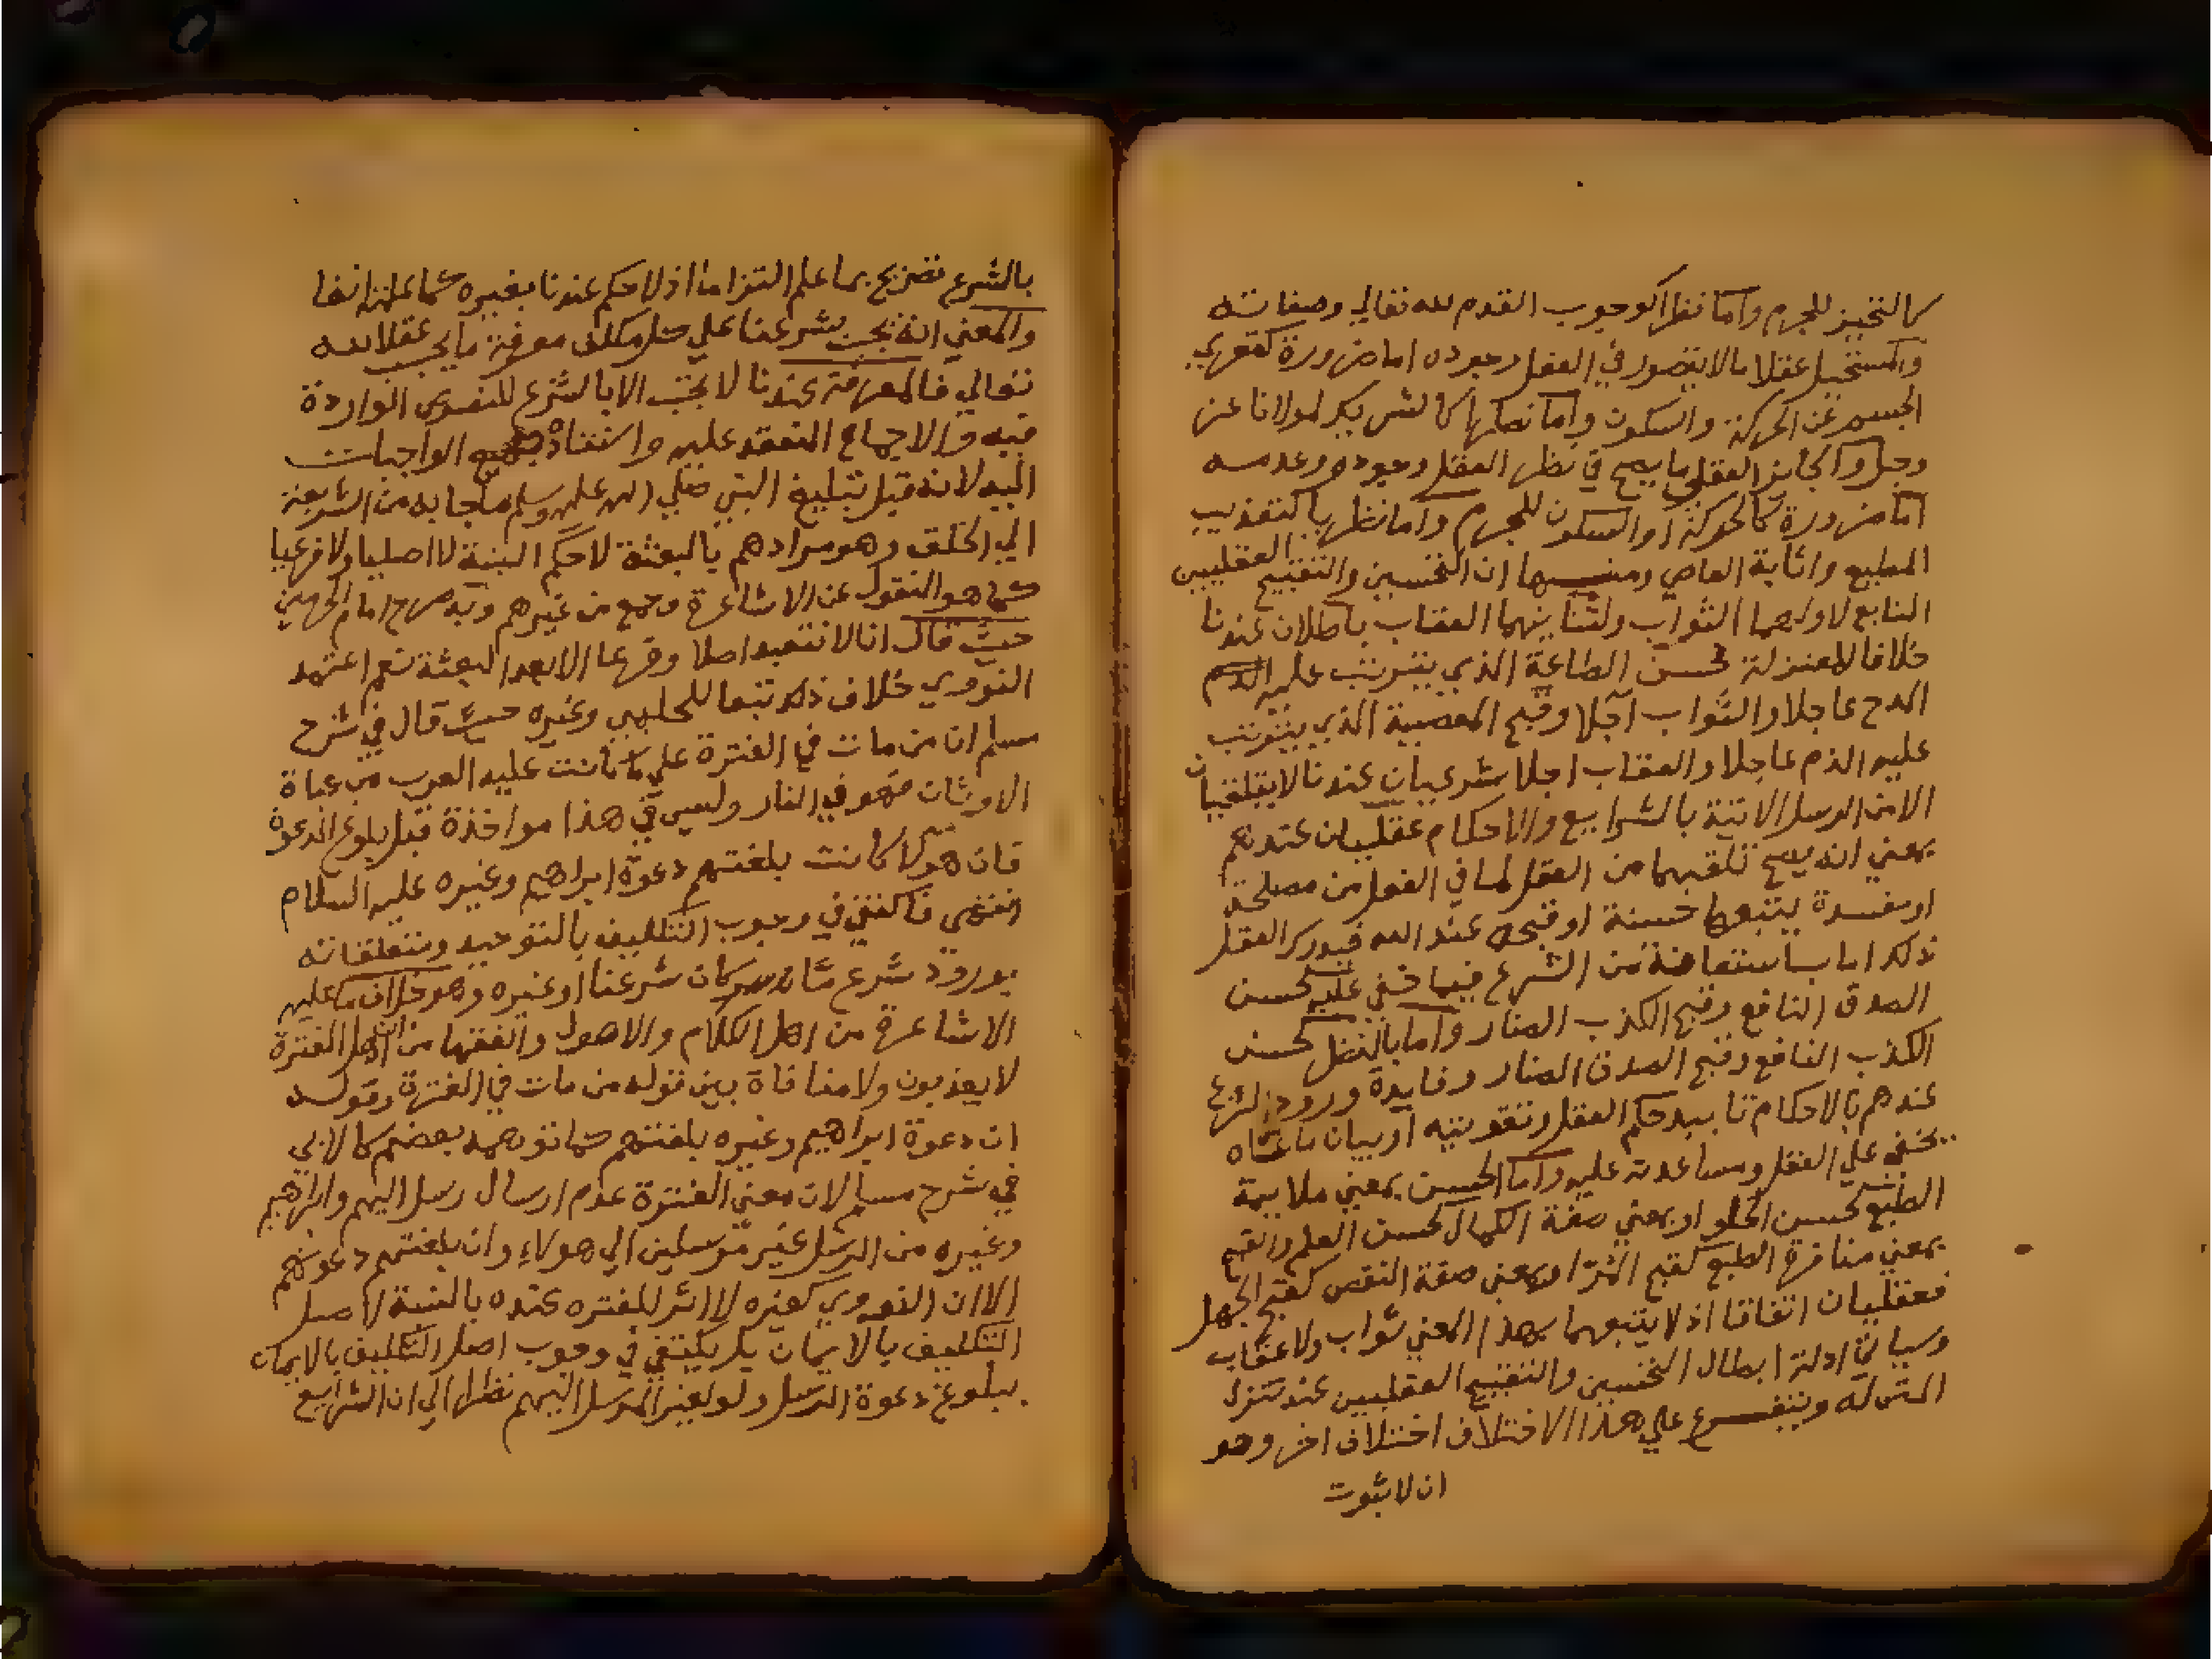 كالتحيز للجرم واما نظرا كوجوب القدم لله تعالي وصفاته
والمستحيل عقلا مالا يتصور في العقل وجوده اما ضرورة كتعري
الجسم عن الحركة والسكون واما نظرا كالشريك لمولانا عز
وجل والجائز العقلي ما يصح في نظر العقل وجوده وعدمه
اما ضرورة كالحركة او السكون للجرم واما نظريا كتعذيب
المطيع واثابة العاصي ومنسبها ان التحسين والتقبيح العقليين
التابع لاولهما الثواب ولثانيهما العقاب باطلان عندنا
خلافا للمعتزلة فحسن الطاعة الذي يترتب عليه الذم
المدح عاجلا والثواب آجلا وقبح المعصية الذي يترتب
عليه الذم عاجلا والعقاب اجلا شرعيان عندنا لا يتلقيان
الا من الرسل الاتية بالشرايع والاحكام عقليان عندهم
بمعني انه يصح تلقيهما من العقل لما في الفعل من مصلحة
او مفسدة يتبعها حسنه او قبحه عند الله فيدرك العقل
ذلك اما باستعانة من الشرع فيما خفي عليه كحسن
الصدق النافع وقبح الكذب الضار واما بالنظر كحسن
الكذب النافع وقبح الصدق الضار وفايدة ورود الشرع
عندهم بالاحكام تاييد حكم العقل وتقويته او بيان ما عساه
يخفي علي العقل ومساعدته عليه واما الحسن بمعني ملايمة
الطبع كحسن الحلو او بمعني صفة الكمال كحسن العلم والقبح
بمعني منافرة الطبع كقبح المر او بمعني صفة النقص كقبح الجهل
فعقليان اتفاقا اذ لا يتبعهما بهذا المعني ثواب ولا عقاب
وسياتي ادلة ابطال التحسين والتقبيح العقليين عند تنزل
المتن له ويتفرع علي هذا الاختلاف اختلاف اخر وهو
ان لا ثبوت
بالشرع تصريح بما علم التزاما اذ لا حكم عندنا بغيره كما علمته انفا
والمعني انه يجب بشرعنا علي كل مكلف معرفة ما يجب عقلا لله
تعالي فالمعرفة عندنا لا تجب الا بالشرع للنصوص الواردة
فيه والاجماع المنعقد عليه واستناد جميع الواجبات
اليه لانه قبل تبليغ النبي صلي الله عليه وسلم ما جا به من الشريعة
الي الخلق وهو مرادهم بالبعثة لا حكم البتة لا اصليا ولا فرعيا
كما هو المنقول عن الاشاعرة وجمع من غيرهم وبه صرح امام الحرمين
حيث قال انا لا نتعبد اصلا وفرعا الا بعد البعثة نعم اعتمد
النووي خلاف ذلك تبعا للحليمي وغيره حيث قال في شرح
مسلم ان من مات في الفترة علي ما كانت عليه العرب من عباة
الاوثان فهو في النار وليس في هذا مواخذة قبل بلوغ الدعوة
فان هولا كانت بلغتهم دعوة ابراهيم وغيره عليه السلام
انتهي فاكتفي في وجوب التكليف بالتوحيد ومتعلقاته
بورود شرع كان شرعنا او غيره وهو خلاف ما عليه
الاشاعرة من اهل الكلام والاصول والفقها من ان اهل الفترة
لا يعذبون ولا منافاة بين قوله من مات في الفترة وقوله
ان دعوة ابراهيم وغيره بلغتهم كما توهمه بعضهم كالابي
في شرح مسلم لان معني الفترة عدم ارسال رسل اليهم وابراهيم
وغيره من الرسل غير مرسلين الي هولاء وان بلغتهم دعوتهم
الا ان النووي كغيره لا اثر للفتره عنده بالنسبة لاصل
التكليف بالايمان بل يكتفي في وجوب اصل التكليف بالايمان
ببلوغ دعوة الرسل ولو لغير المرسل اليهم نظرا الي ان الشرايع